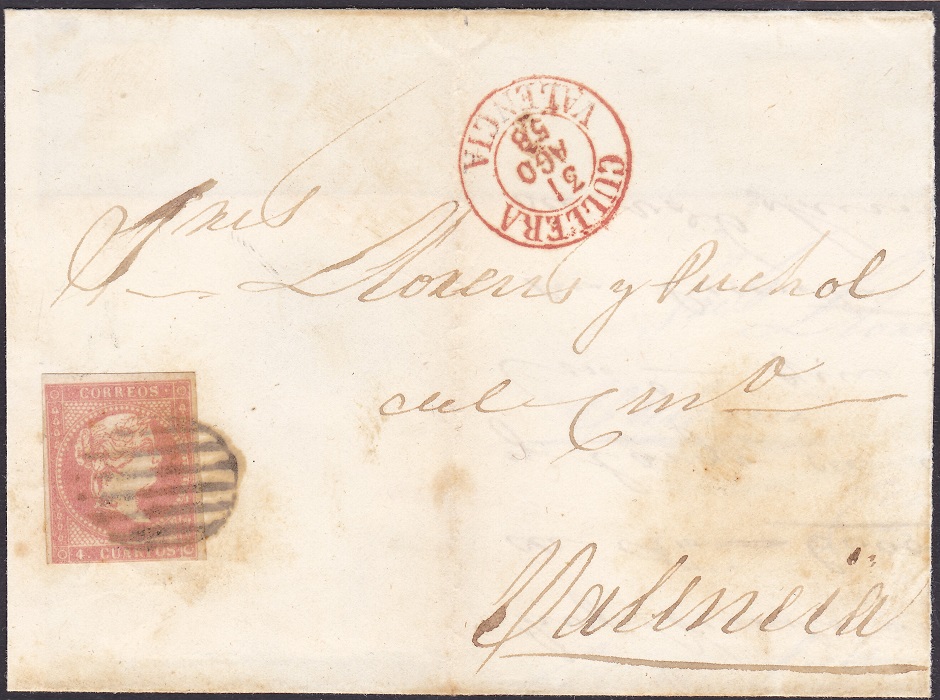 CULLERA
31
AGO
58
VALENCIA
Sres Llorens y Puchol
del Cmo
Valencia
CORREOS
4. CUARTOS